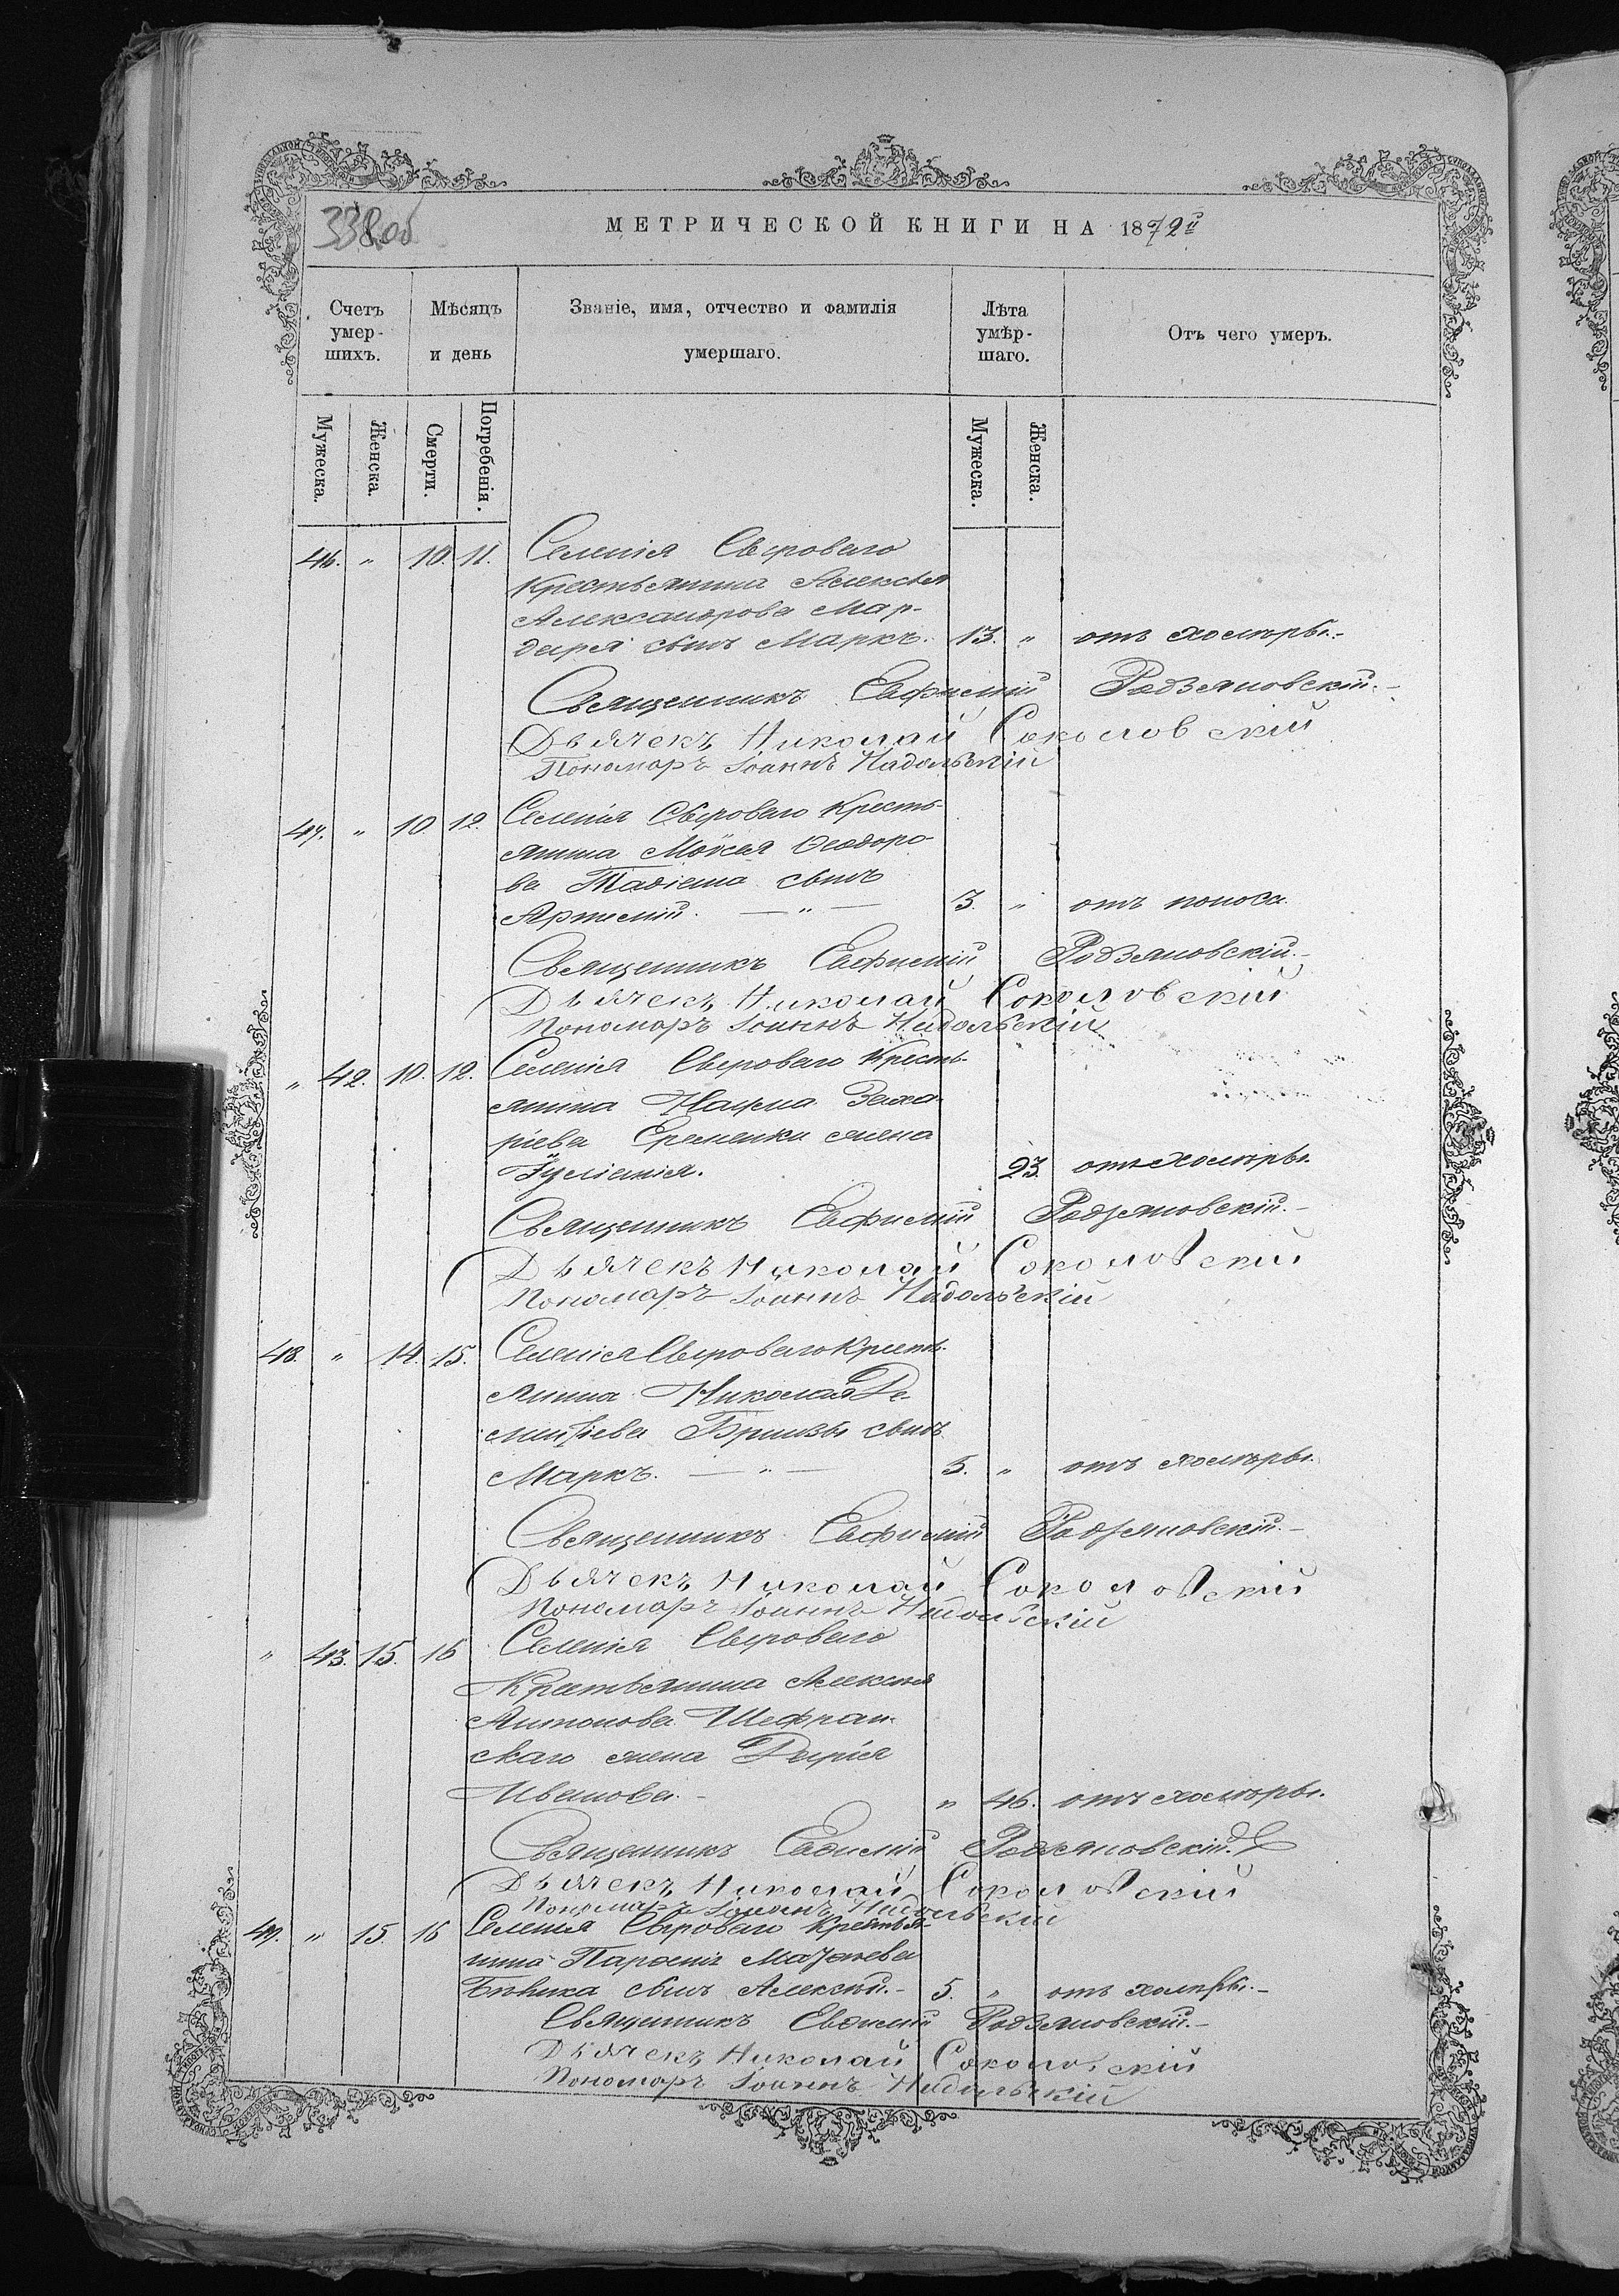 338об
МЕТРИЧЕСКОЙ КНИГИ НА 1872й
Счетъ умер-шихъ.
Мѣсяцъ и день
Званіе, имя, отчество и фамилія умершаго.
Лѣта умѣр-шаго.
Отъ чего умеръ.
Мужеска. Женска. Смерти. Погребенія. Мужеска. Женска.
46. " 10. 11. Селенія Сырового
Крестьянина Алексѣя
Александрова Мар-
даря сынъ Маркъ. 13. " отъ холеры.-
Священникъ Евфимій Родзяновскій.-
Дьячекъ Николай Соколовскій
Пономарь Іоаннъ Надольскій
47. " 10 12. Селенія Сырового Кресть-
янина Мойсея Ѳеодоро
ва сынъ
Артемій. — " — 3. " отъ поноса.
Священникъ Евфимій Родзяновскій.-
Дьячекъ Николай Соколовскій
Пономарь Іоаннъ Надольскій
" 42. 10. 12. Селенія Сырового Кресть-
янина Наума Заха
ріева Еременки жена
Іуліанія. 23. отъ холеры.
Священникъ Евфимій Родзяновскій.-
Дьячекъ Николай Соколовскій
Пономарь Іоаннъ Надольскій
48. " 14. 15. Селенія Сырового Кресть-
янина Николая Де-
ментіева Бринзы сынъ
Маркъ. — " — 5. " отъ холеры.
Священникъ Евфимій Родзяновскій.-
Дьячекъ Николай Соколовскій
Пономарь Іоаннъ Надольскій
" 43. 15. 16 Селенія Сырового
Крестьянина Алексѣя
Антонова Шефран-
скаго жена Дарія
Иванова.- " 46. отъ холеры.
Священникъ Евфимій Родзяновскій.
Дьячекъ Николай Соколовскій
Пономарь Іоаннъ Надольскій
49. " 15 16 Селенія Сырового Крестья-
нина
сынъ Алексѣй.- 5. " отъ холеры.-
Священникъ Евфимій Родзяновскій.-
Дьячекъ Николай Соколовскій
Пономарь Іоаннъ Надольскій